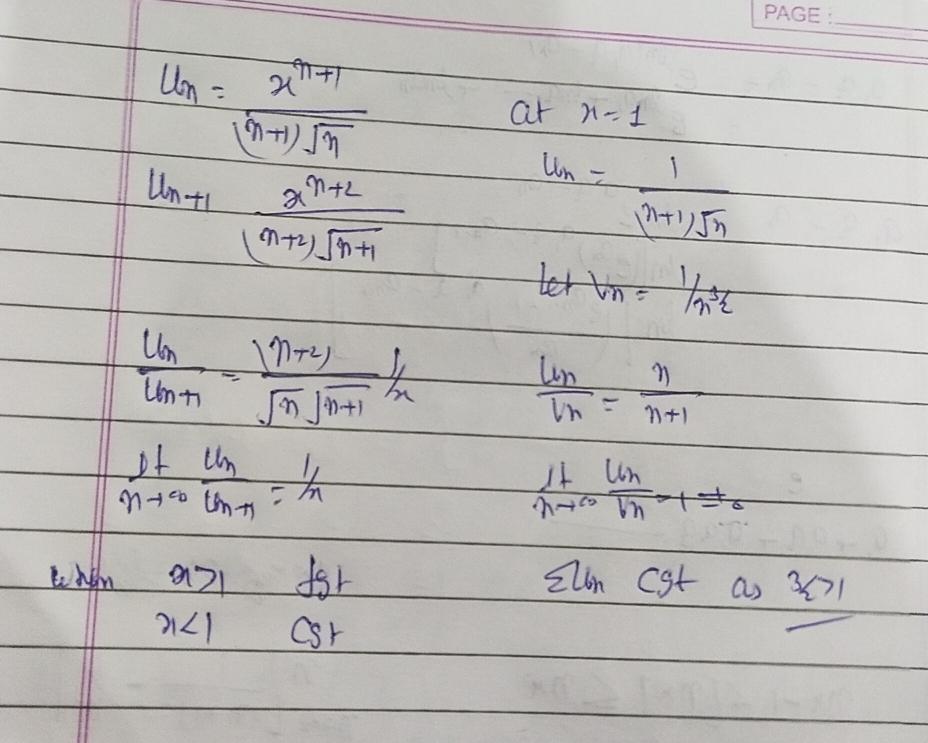 PAGE :
Un = x^(n+1) / ((n+1) √n)
Un+1 x^(n+2) / ((n+2) √(n+1))
Un / Un+1 = (n+2) / (√n √(n+1)) 1/x
lt n→∞ Un / Un+1 = 1/x
when x>1 dgt
x<1 Cgt
at x=1
Un = 1 / ((n+1) √n)
let Vn = 1/n^(3/2)
Un / Vn = n / (n+1)
lt n→∞ Un / Vn = 1 ≠ 0
ΣUn Cgt as 3/2>1